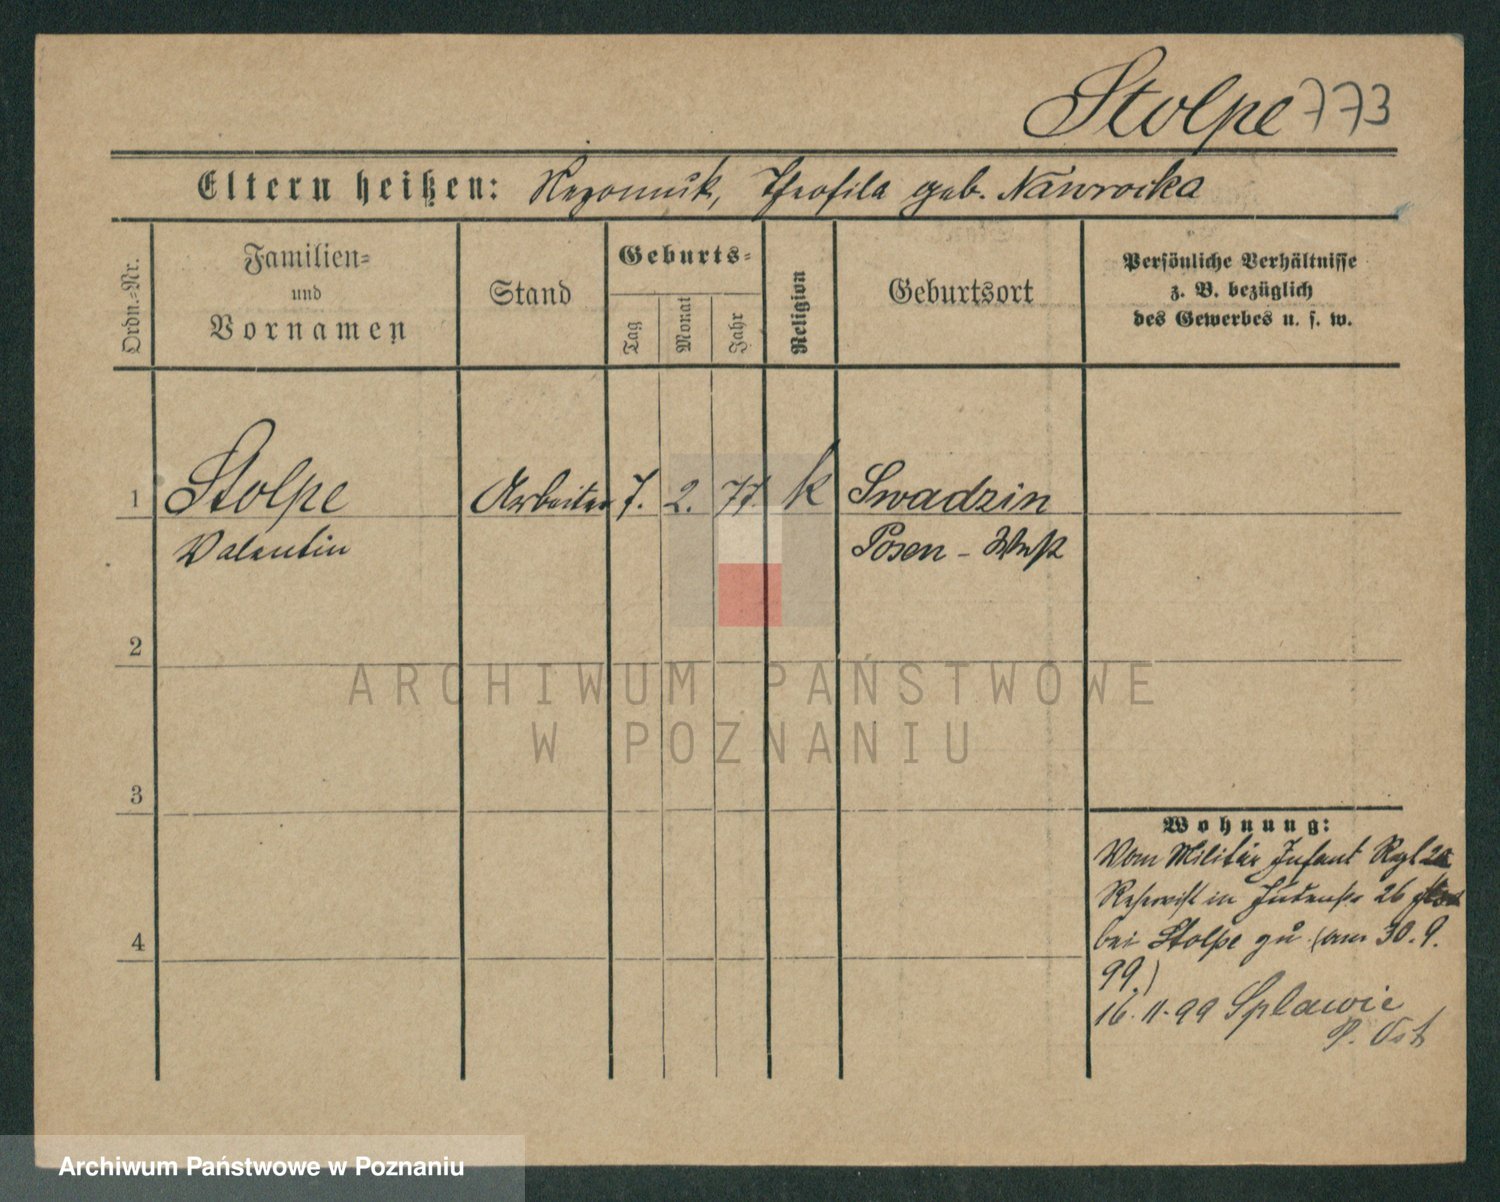 Stolpe 773
Eltern heißen: Nepomuk, Theofila geb. Nawrocka
Ordn.-Nr.
Familien-
und
Vornamen
Stand
Geburts-
Tag
Monat
Jahr
Religion
Geburtsort
Persönliche Verhältnisse
z. B. bezüglich
des Gewerbes u. s. w.
1 Stolpe Arbeiter 7. 2. 77. k Swadzin
Valentin Posen - West
2
3
4
Wohnung:
Vom Militär Infant Rgt
Reservist in Judenstr 26
bei Stolpe zu (am 30. 9.
99.)
16. 11. 99 Splawie
P. Ost
ARCHIWUM PAŃSTWOWE
W POZNANIU
Archiwum Państwowe w Poznaniu